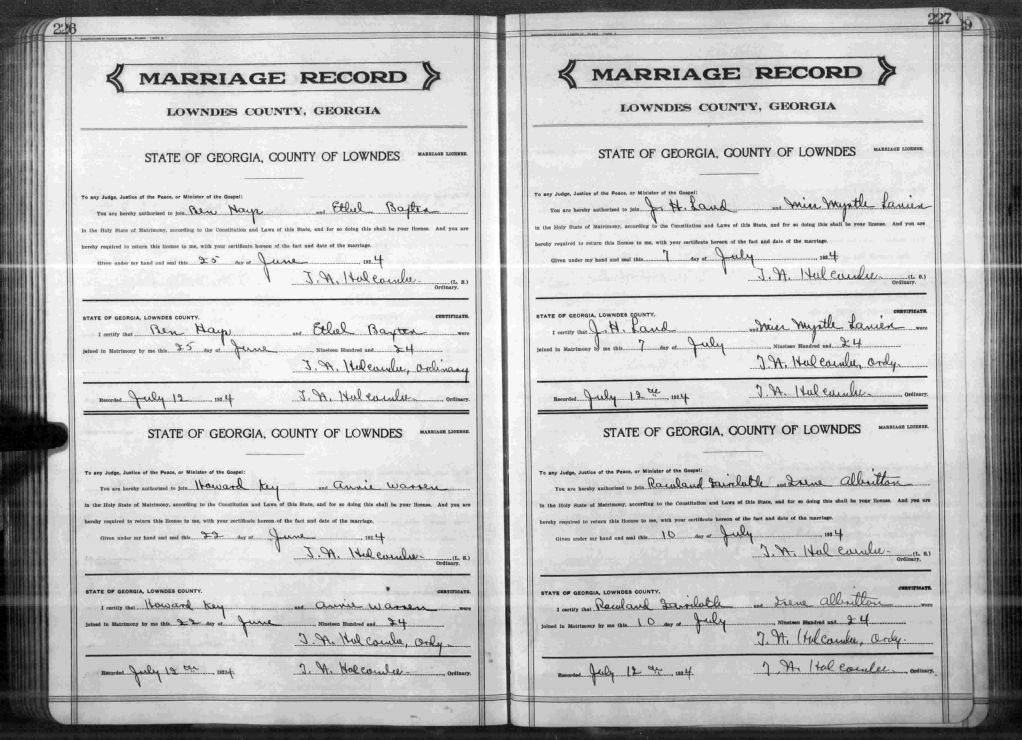 226
MARRIAGE RECORD
LOWNDES COUNTY, GEORGIA
STATE OF GEORGIA, COUNTY OF LOWNDES MARRIAGE LICENSE.
To any Judge, Justice of the Peace, or Minister of the Gospel:
You are hereby authorized to join Ben Hays and Ethel Baxten
in the Holy State of Matrimony, according to the Constitution and Laws of this State, and for so doing this shall be your License. And you are
hereby required to return this license to me, with your certificate hereon of the fact and date of the marriage.
Given under my hand and seal this 25 day of June 1924
T. A. Holcombe (L. S.)
Ordinary.
STATE OF GEORGIA, LOWNDES COUNTY. CERTIFICATE.
I certify that Ben Hays and Ethel Baxten were
joined in Matrimony by me this 25 day of June Nineteen Hundred and 24
T. A. Holcombe, Ordinary
Recorded July 12 1924 T. A. Holcombe Ordinary.
STATE OF GEORGIA, COUNTY OF LOWNDES MARRIAGE LICENSE.
To any Judge, Justice of the Peace, or Minister of the Gospel:
You are hereby authorized to join Howard Key and Annie Warren
in the Holy State of Matrimony, according to the Constitution and Laws of this State, and for so doing this shall be your License. And you are
hereby required to return this license to me, with your certificate hereon of the fact and date of the marriage.
Given under my hand and seal this 22 day of June 1924
T. A. Holcombe (L. S.)
Ordinary.
STATE OF GEORGIA, LOWNDES COUNTY. CERTIFICATE.
I certify that Howard Key and Annie Warren were
joined in Matrimony by me this 22 day of June Nineteen Hundred and 24
T. A. Holcombe, Ordy.
Recorded July 12th 1924 T. A. Holcombe Ordinary.
227
MARRIAGE RECORD
LOWNDES COUNTY, GEORGIA
STATE OF GEORGIA, COUNTY OF LOWNDES MARRIAGE LICENSE.
To any Judge, Justice of the Peace, or Minister of the Gospel:
You are hereby authorized to join J. H. Land and Miss Myrtle Lanier
in the Holy State of Matrimony, according to the Constitution and Laws of this State, and for so doing this shall be your License. And you are
hereby required to return this license to me, with your certificate hereon of the fact and date of the marriage.
Given under my hand and seal this 7 day of July 1924
T. A. Holcombe (L. S.)
Ordinary.
STATE OF GEORGIA, LOWNDES COUNTY. CERTIFICATE.
I certify that J. H. Land and Miss Myrtle Lanier were
joined in Matrimony by me this 7 day of July, Nineteen Hundred and 24
T. A. Holcombe, Ordy.
Recorded July 12th 1924 T. A. Holcombe, Ordinary.
STATE OF GEORGIA, COUNTY OF LOWNDES MARRIAGE LICENSE.
To any Judge, Justice of the Peace, or Minister of the Gospel:
You are hereby authorized to join Rowland Faircloth and Irene Albritton
in the Holy State of Matrimony, according to the Constitution and Laws of this State, and for so doing this shall be your License. And you are
hereby required to return this license to me, with your certificate hereon of the fact and date of the marriage.
Given under my hand and seal this 10 day of July 1924
T. A. Holcombe (L. S.)
Ordinary.
STATE OF GEORGIA, LOWNDES COUNTY. CERTIFICATE.
I certify that Rowland Faircloth and Irene Albritton were
joined in Matrimony by me this 10 day of July, Nineteen Hundred and 24
T. A. Holcombe, Ordy.
Recorded July 12th 1924 T. A. Holcombe, Ordinary.